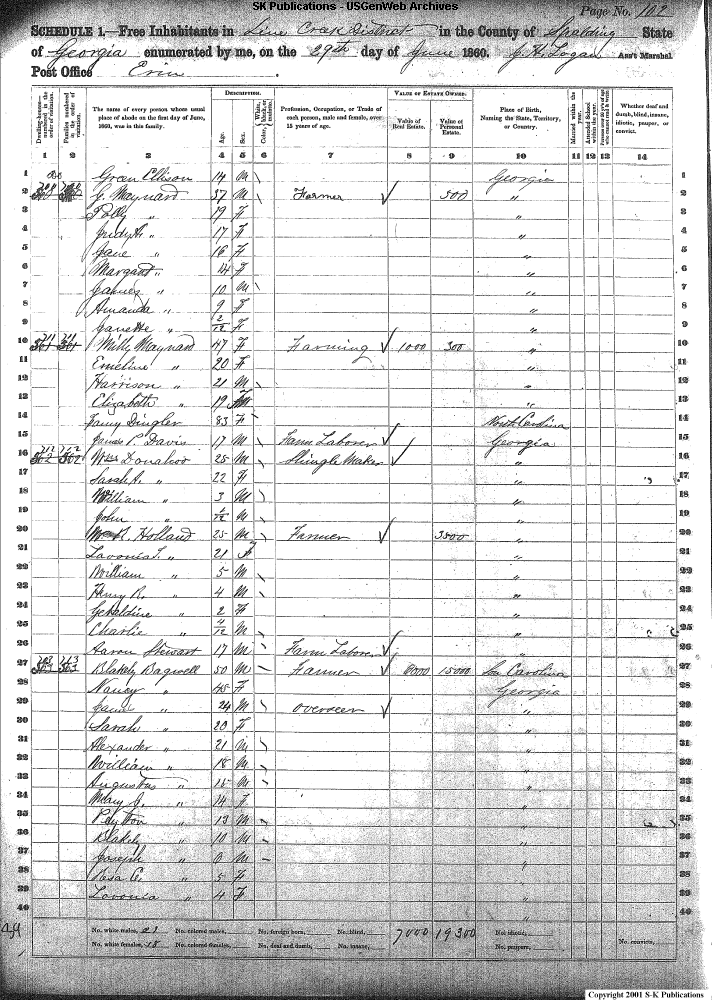 SK Publications - USGenWeb Archives
Page No. 102
SCHEDULE 1.—Free Inhabitants in Line Creek District in the County of Spalding State
of Georgia enumerated by me, on the 29th day of June 1860. J. H. Logan Ass't Marshal.
Post Office Erin.
Dwelling-houses—numbered in the order of visitation.
Families numbered in the order of visitation.
The name of every person whose usual place of abode on the first day of June, 1860, was in this family.
DESCRIPTION.
Age.
Sex.
Color, White, black, or mulatto.
Profession, Occupation, or Trade of each person, male and female, over 15 years of age.
VALUE OF ESTATE OWNED.
Value of Real Estate.
Value of Personal Estate.
Place of Birth, Naming the State, Territory, or Country.
Married within the year.
Attended School within the year.
Persons over 20 years of age who cannot read & write.
Whether deaf and dumb, blind, insane, idiotic, pauper, or convict.
1 2 3 4 5 6 7 8 9 10 11 12 13 14
1 Green Ellison 14 M Georgia 1
2 G. Maynard 37 M Farmer 500 " 2
3 Polly " 19 F " 3
4 Judy A. " 17 F " 4
5 Jane " 16 F " 5
6 Margaret " 14 F " 6
7 James " 10 M " 7
8 Amanda " 9 F " 8
9 Janette " 2/12 F " 9
10 711 711 Milly Maynard 47 F Farming 1000 300 " 10
11 Emeline " 20 F " 11
12 Harrison " 21 M " 12
13 Elizabeth " 19 F " 13
14 Dingler 83 F North Carolina 14
15 James P. Davis 17 M Farm Laborer Georgia 15
16 712 712 Wm Donahoo 25 M Shingle Maker " 16
17 Sarah A. " 22 F " 17
18 William " 3 M " 18
19 John " /12 M " 19
20 R. Holland 25 M Farmer 3500 " 20
21 Lavonia T. " 21 F " 21
22 William " 5 M " 22
23 Henry R. " 4 M " 23
24 Geraldine " 2 F " 24
25 Charlie " 4/12 M " 25
26 Aaron Stewart 17 M Farm Laborer " 26
27 713 713 Blakely Bagwell 50 M Farmer 8000 15000 So Carolina 27
28 Nancy " 45 F Georgia 28
29 James " 24 M overseer " 29
30 Sarah " 20 F " 30
31 Alexander " 21 M " 31
32 William " 18 M " 32
33 Augustus " 15 M " 33
34 Mary J. " 14 F " 34
35 Peyton " 13 M " 35
36 Blakely " 10 M " 36
37 Joseph " M " 37
38 " 5 F " 38
39 Lovonia " 4 F " 39
40 40
No. white males, 21 No. colored males, No. foreign born, No. blind, 7000 19300 No. idiotic,
No. white females, 18 No. colored females, No. deaf and dumb, No. insane, No. paupers, No. convicts,
Copyright 2001 S-K Publications